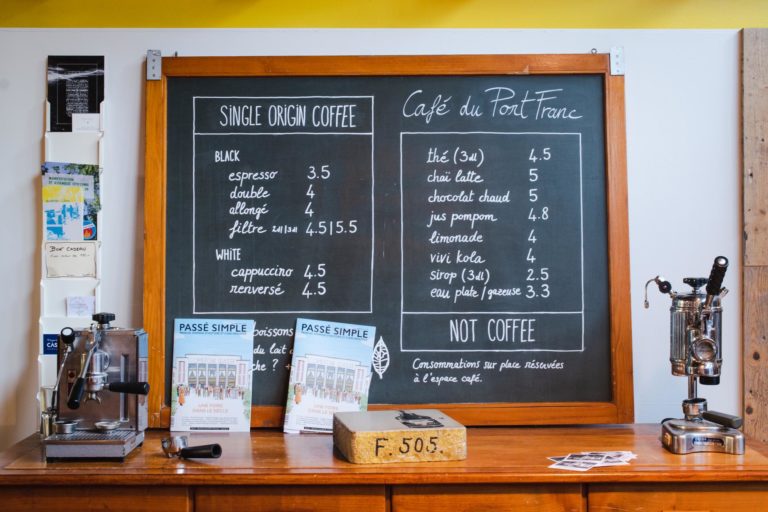 SINGLE ORIGIN COFFEE
BLACK
espresso 3.5
double 4
allongé 4
filtre 2dl|3dl 4.5|5.5
WHITE
cappuccino 4.5
renversé 4.5
Café du Port Franc
thé (3dl) 4.5
chaï latte 5
chocolat chaud 5
jus pompom 4.8
limonade 4
vivi kola 4
sirop (3dl) 2.5
eau plate/gazeuse 3.3
NOT COFFEE
Consommations sur place réservées
à l'espace café.
poissons
du lait d
he ? +
PASSÉ SIMPLE
PASSÉ SIMPLE
F. 505.
BON CADEAU